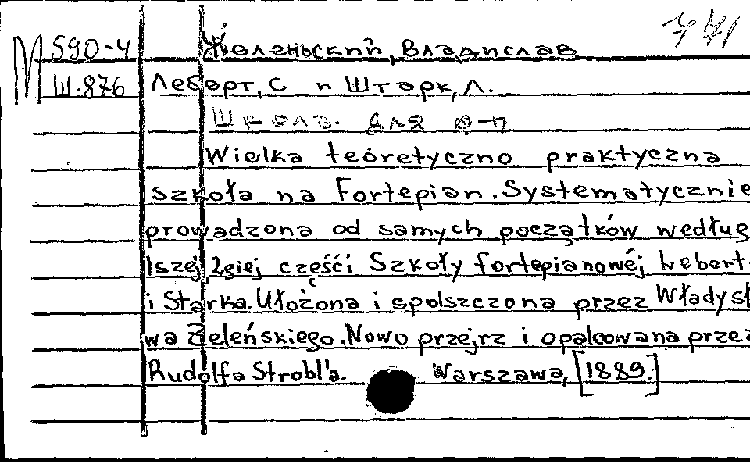 М 590-4 Желеньский, Владислав
Ш.876 Леберт, С и Штарк, Л.
Школа. для ф-п
Wielka teoretyczno praktyczna
szkoła na Fortepian. Systematycznie
prowadzona od samych początków według
1szej, 2giej części Szkoły fortepianowéj Lebert
i Starka. Ułożona i spolszczona przez Władysł
wa Żeleńskiego. Nowo przejrz i opalcowana prze
Rudolfa Strobl'a. Warszawa, [1889.]